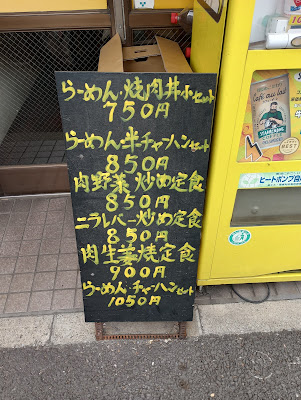 らーめん・焼肉丼小セット
750円
らーめん・半チャーハンセット
850円
肉野菜炒め定食
850円
ニラレバー炒め定食
850円
肉生姜焼定食
900円
らーめん・チャーハンセット
1050円
Café au lait
BEST
ヒートポンプ自